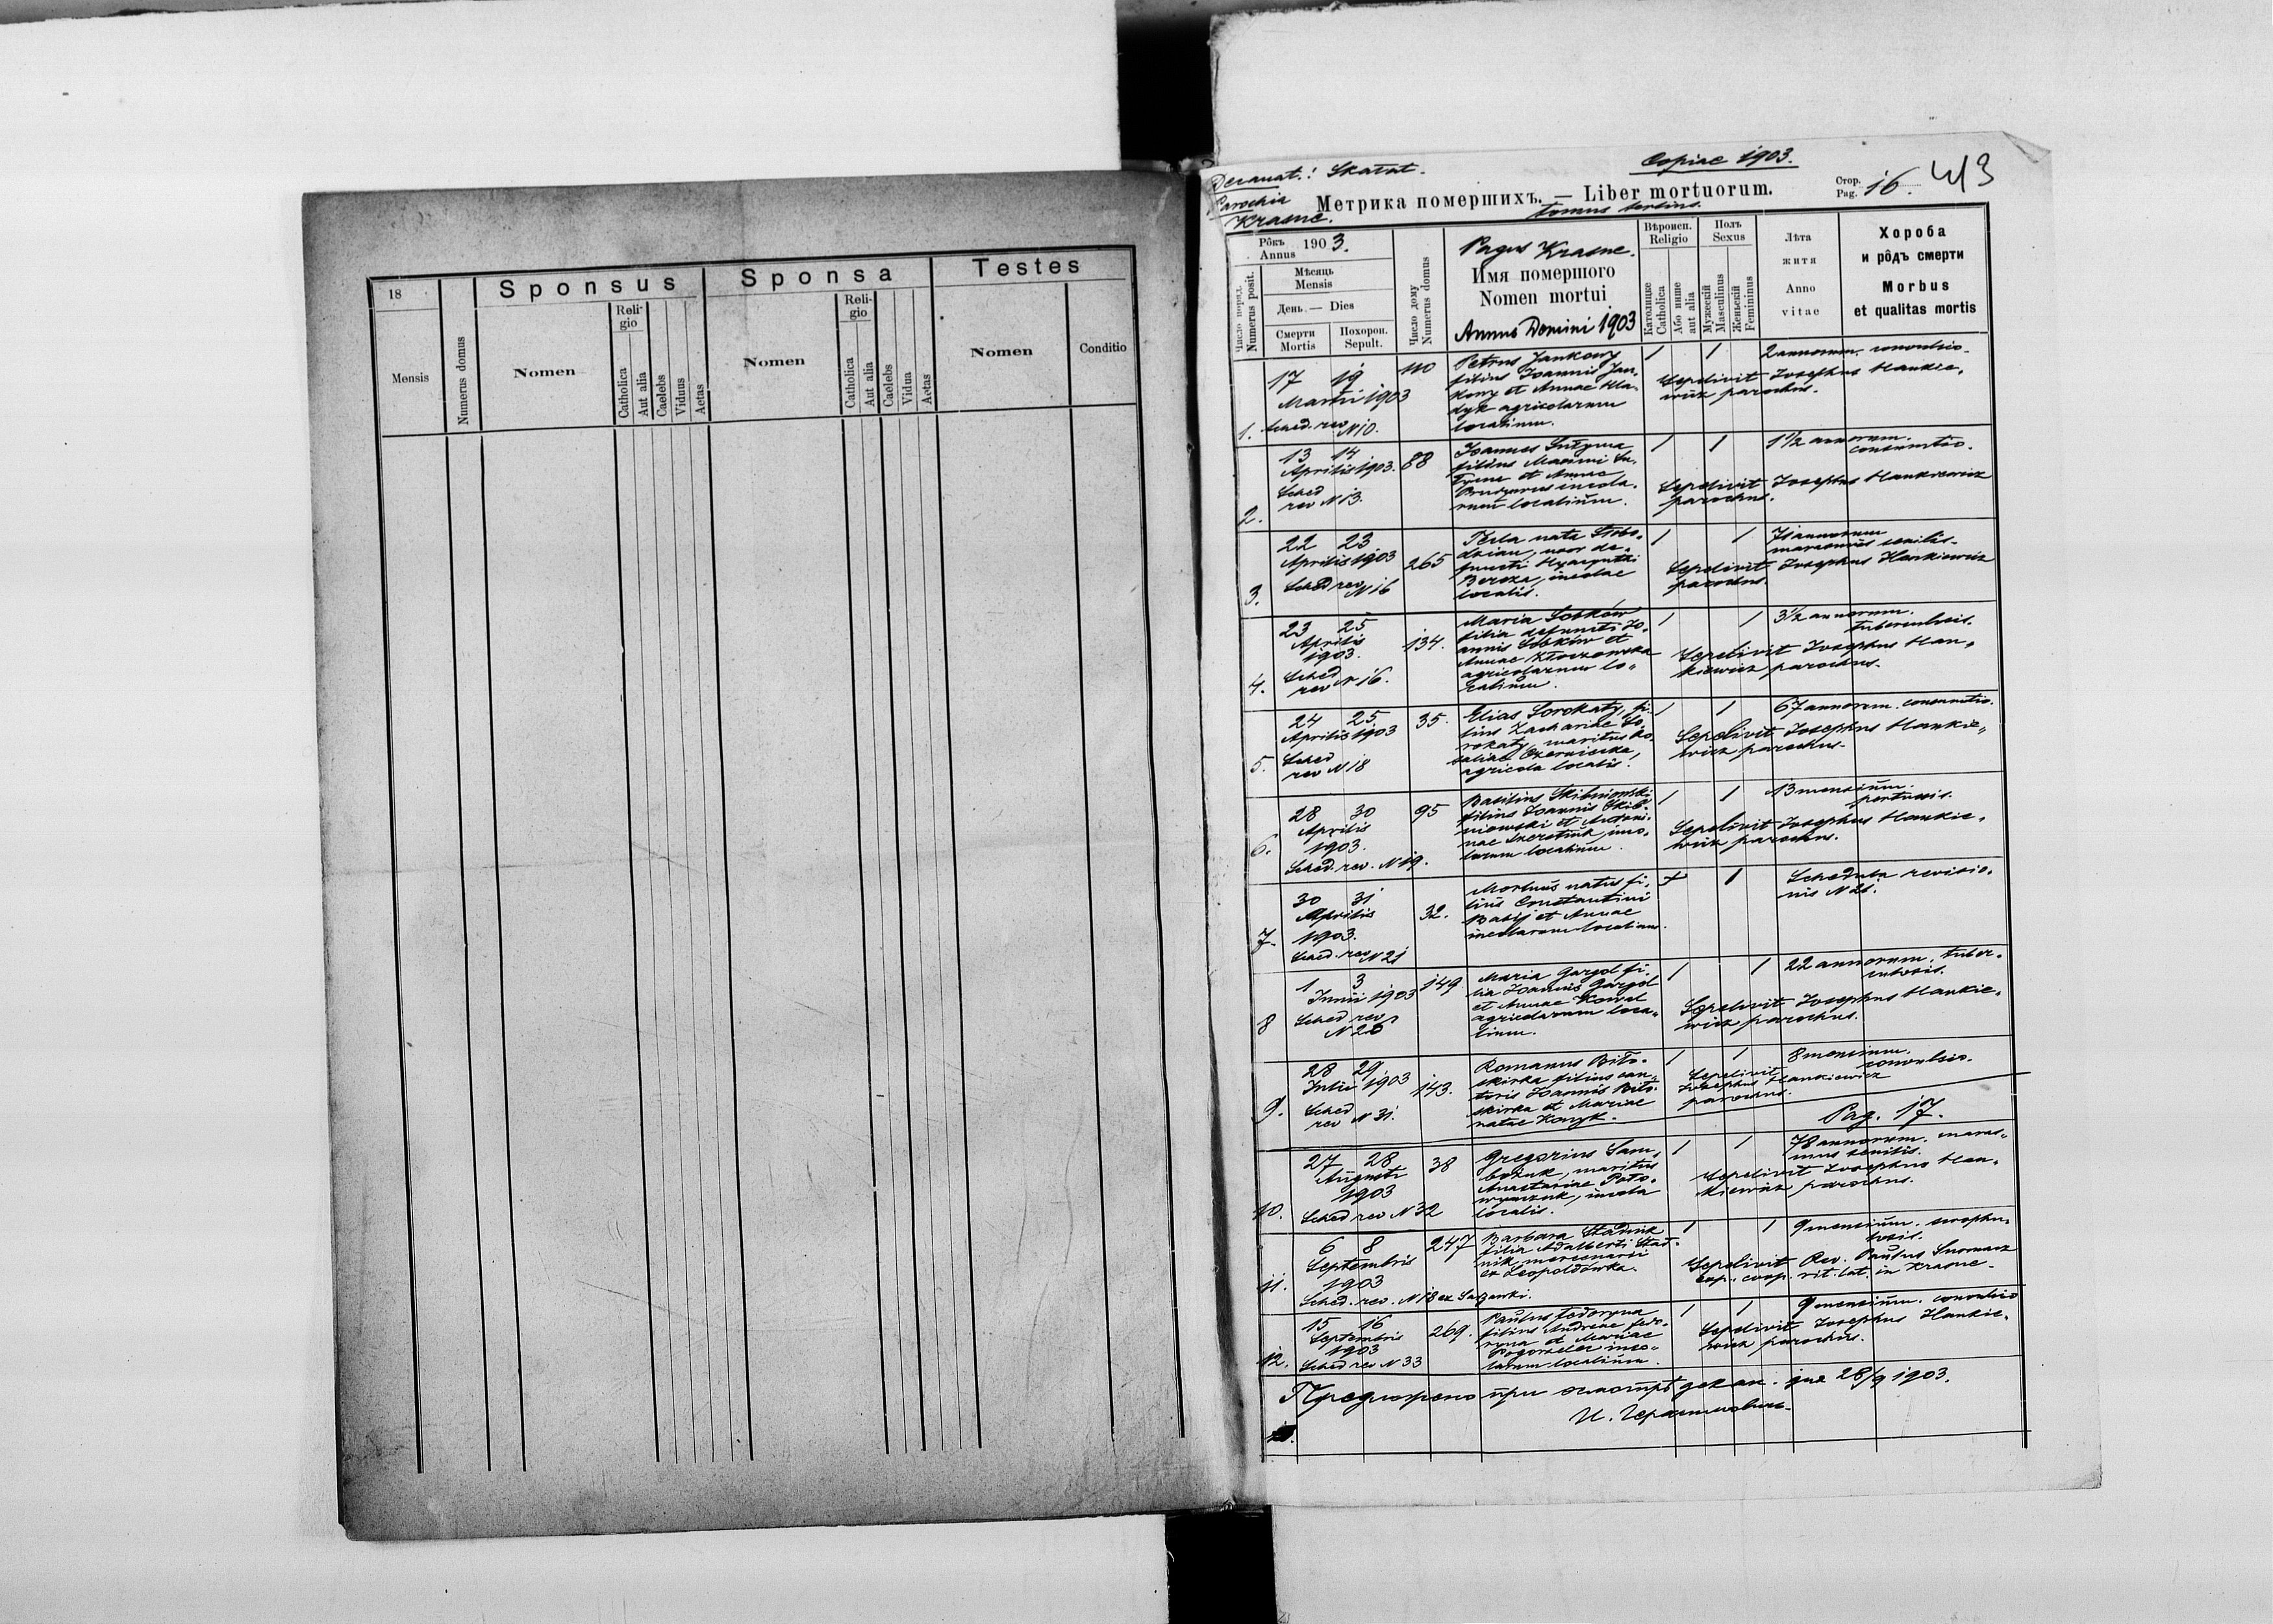 18
Mensis
Numerus domus
Sponsus
Nomen
Reli-
gio
Catholica
Aut alia
Caelebs
Viduus
Aetas
Sponsa
Nomen
Reli-
gio
Catholica
Aut alia
Caelebs
Vidua
Aetas
Testes
Nomen
Conditio
Decanat.: Skałat.
Copiae 1903.
Parochia
Krasne.
Метрика помершихъ. — Liber mortuorum.
tomus tertius.
Стор.
Pag. 16.
413
Рôкъ
Annus 1903.
Число поряд.
Numerus posit.
Мѣсяць
Mensis
День — Dies
Смерти
Mortis
Похорон.
Sepult.
Число дому
Numerus domus
Pagus Krasne.
Имя помершого
Nomen mortui
Annus Domini 1903
Вѣроисп.
Religio
Католицке
Catholica
Або инше
aut alia
Полъ
Sexus
Мужескій
Masculinus
Женьскій
Femininus
Лѣта
житя
Anno
vitae
Хороба
и рôдъ смерти
Morbus
et qualitas mortis
1.
17 19
Martii 1903
Sched. rev
N 10.
110
Petrus Jankowy
filius Joannis Jan-
kowy et Annae Hla-
dyk agricolarum
localium.
1 1
2 annorum. convulsio.
Sepelivit Josephus Hankie-
wicz parochus.
2.
13 14
Aprilis 1903.
Sched
rev N 13.
88
Joannes
filius Maximi
et Annae
incola-
rum localium.
1 1
1 1/2 annorum.
consumtio.
Sepelivit Josephus Hankiewicz
parochus.
3.
22 23
Aprilis 1903
Sched rev
N 16
265
Tecla nata Słobo-
dzian, uxor de-
functi
Bereza, incolae
localis.
1 1
71 annorum
marasmus senilis.
Sepelivit Josephus Hankiewicz
parochus.
4.
23 25
Aprilis
1903.
Sched
rev N 16.
134.
Maria Sobków
filia defuncti Jo-
annis Sobków et
Annae
agricolarum lo-
calium.
1 1
3 1/2 annorum.
tuberculosis.
Sepelivit Josephus Han-
kiewicz parochus.
5.
24 25
Aprilis 1903
Sched
rev N 18
35.
Elias Sorokaty, fi-
lius Zachariae So-
rokaty, maritus Ro-
saliae Czerniecka,
agricola localis.
1 1
67 annorum. consumtio.
Sepelivit Josephus Hankie-
wicz parochus.
6.
28 30
Aprilis
1903.
Sched. rev. N 19.
95
Basilius Skibniowski
filius Joannis Skib-
niowski et Antoni-
nae inco-
larum localium.
1 1
13 mensium.
pertussis.
Sepelivit Josephus Hankie-
wicz parochus.
7.
30 31
Aprilis
1903.
Sched. rev N 21
32.
Mortuus natus fi-
lius Constantini
Babij et Annae
incolarum localium.
+ 1
Schedula revisio-
nis N 21.
8
1 3
Junii 1903
Sched rev
N 26
149
Maria Gargol fi-
lia Joannis Gargol
et Annae Kowal
agricolarum loca-
lium.
1 1
22 annorum. tuber-
culosis.
Sepelivit Josephus Hankie-
wicz parochus.
9.
28 29
Julii 1903
Sched
rev N 31.
143.
Romanus Biło-
skirka filius can-
toris Joannis Biło-
skirka et Mariae
natae Kozyk.
1 1
8 mensium.
convulsio.
Sepelivit
Josephus Hankiewicz
parochus.
Pag. 17.
10.
27 28
Augusti
1903
Sched rev N 32
38
Gregorius Sam-
borżuk, maritus
Anastasiae
incola
localis.
1 1
78 annorum. maras-
mus senilis.
Sepelivit Josephus Han-
kiewicz parochus.
11.
6 8
Septembris
1903
Sched. rev. N 18 ex
247
Barbara Stadnik
filia Adalberti Stad-
nik mercenarii
ex Leopoldówka.
1 1
9 mensium. scrophu-
losis.
Sepelivit Rev. Paulus
exp. coop. rit. lat. in Krasne.
12.
15 16
Septembris
1903
Sched rev N 33
269.
Paulus Fedoryna
filius Andreae Fedo-
ryna et Mariae
inco-
larum localium.
1 1
9 mensium. convulsio
Sepelivit Josephus Hankie-
wicz, parochus.
при декан. дня 28/9 1903.